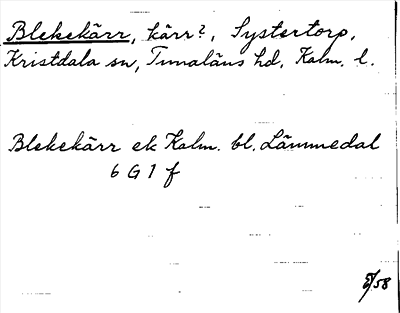 Blekekärr, kärr?, Systertorp,
Kristdala sn, Tunaläns hd, Kalm. l.
Blekekärr ek Kalm. bl. Lämmedal
6 G 1 f
/58